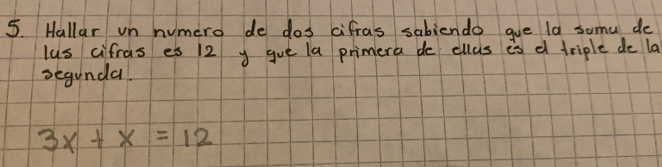 5. Hallar un numero de dos cifras sabiendo que la suma de
las cifras es 12 y que la primera de ellas es el triple de la
segunda.
3x + x = 12